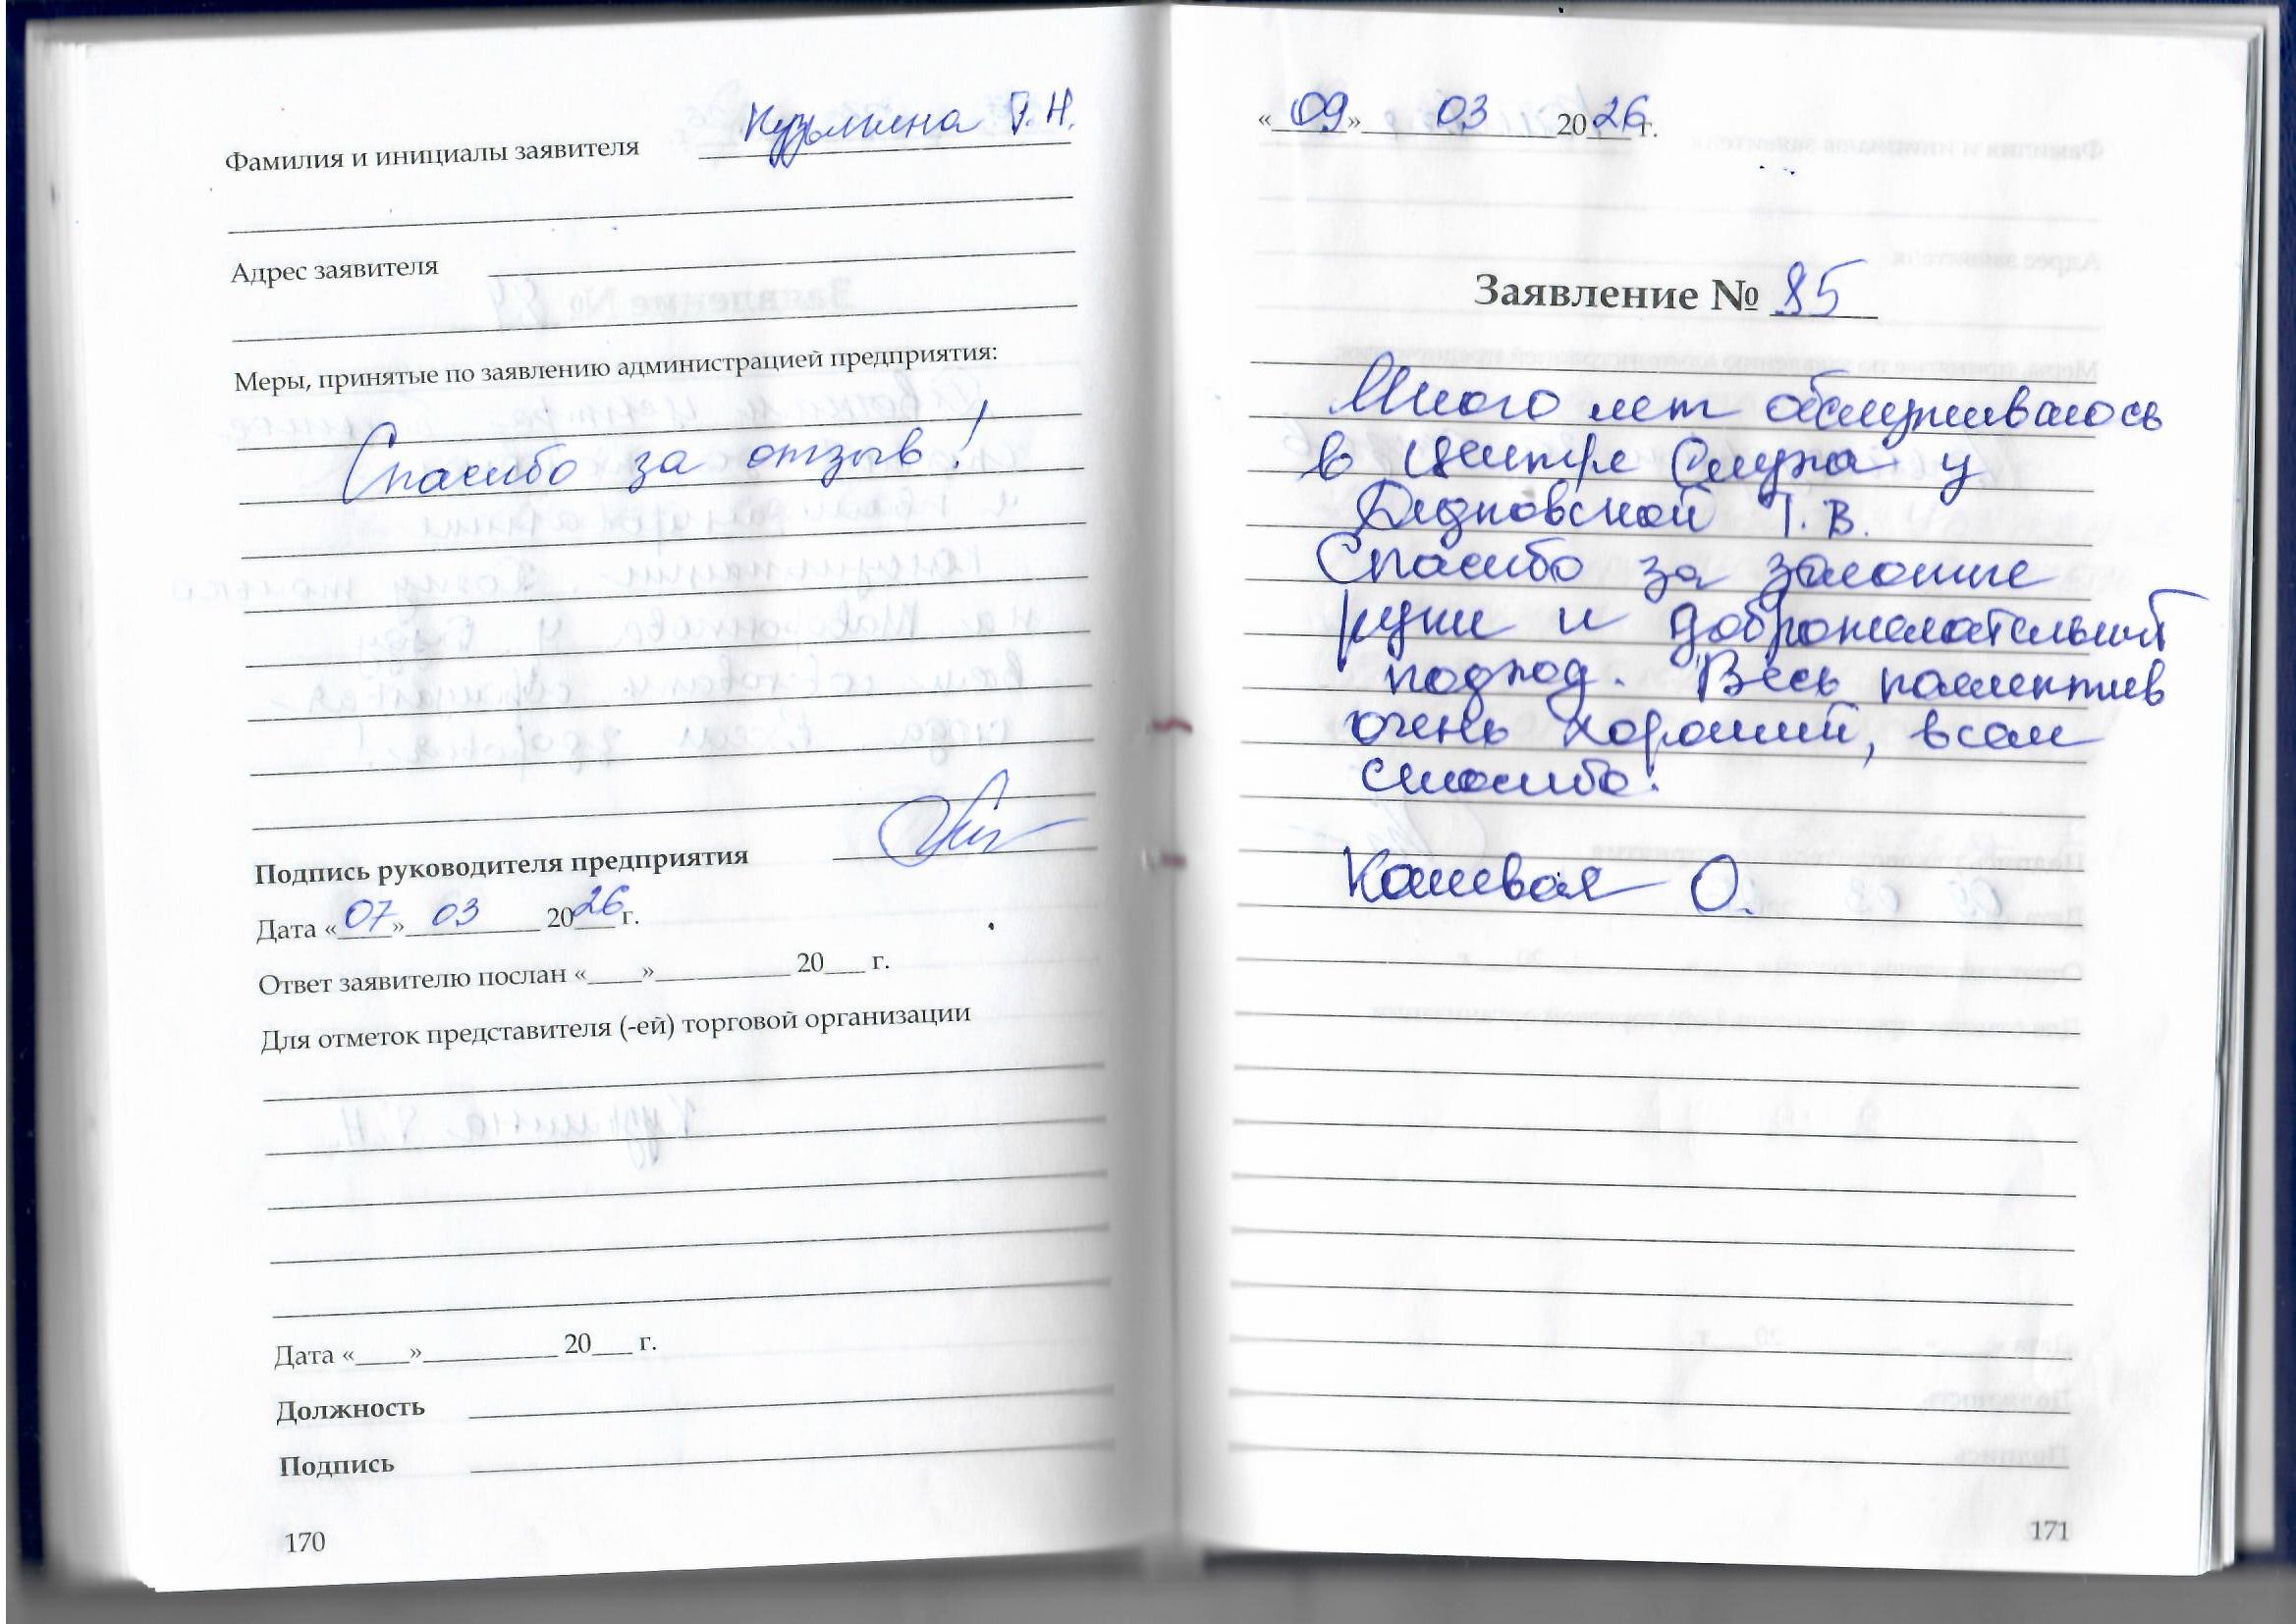 Фамилия и инициалы заявителя Кузьмина Г.Н.
Адрес заявителя
Меры, принятые по заявлению администрацией предприятия:
Спасибо за отзыв!
Подпись руководителя предприятия
Дата «07» 03 2026 г.
Ответ заявителю послан «____»__________ 20___ г.
Для отметок представителя (-ей) торговой организации
Дата «____»__________ 20___ г.
Должность
Подпись
170
«09» 03 2026 г.
Заявление № 85
Много лет обслуживаюсь
в Центре Слуха у
Дидковской Т.В.
Спасибо за золотые
руки и доброжелательный
подход. Весь коллектив
очень хороший, всем
спасибо.
Кошевая О.
171